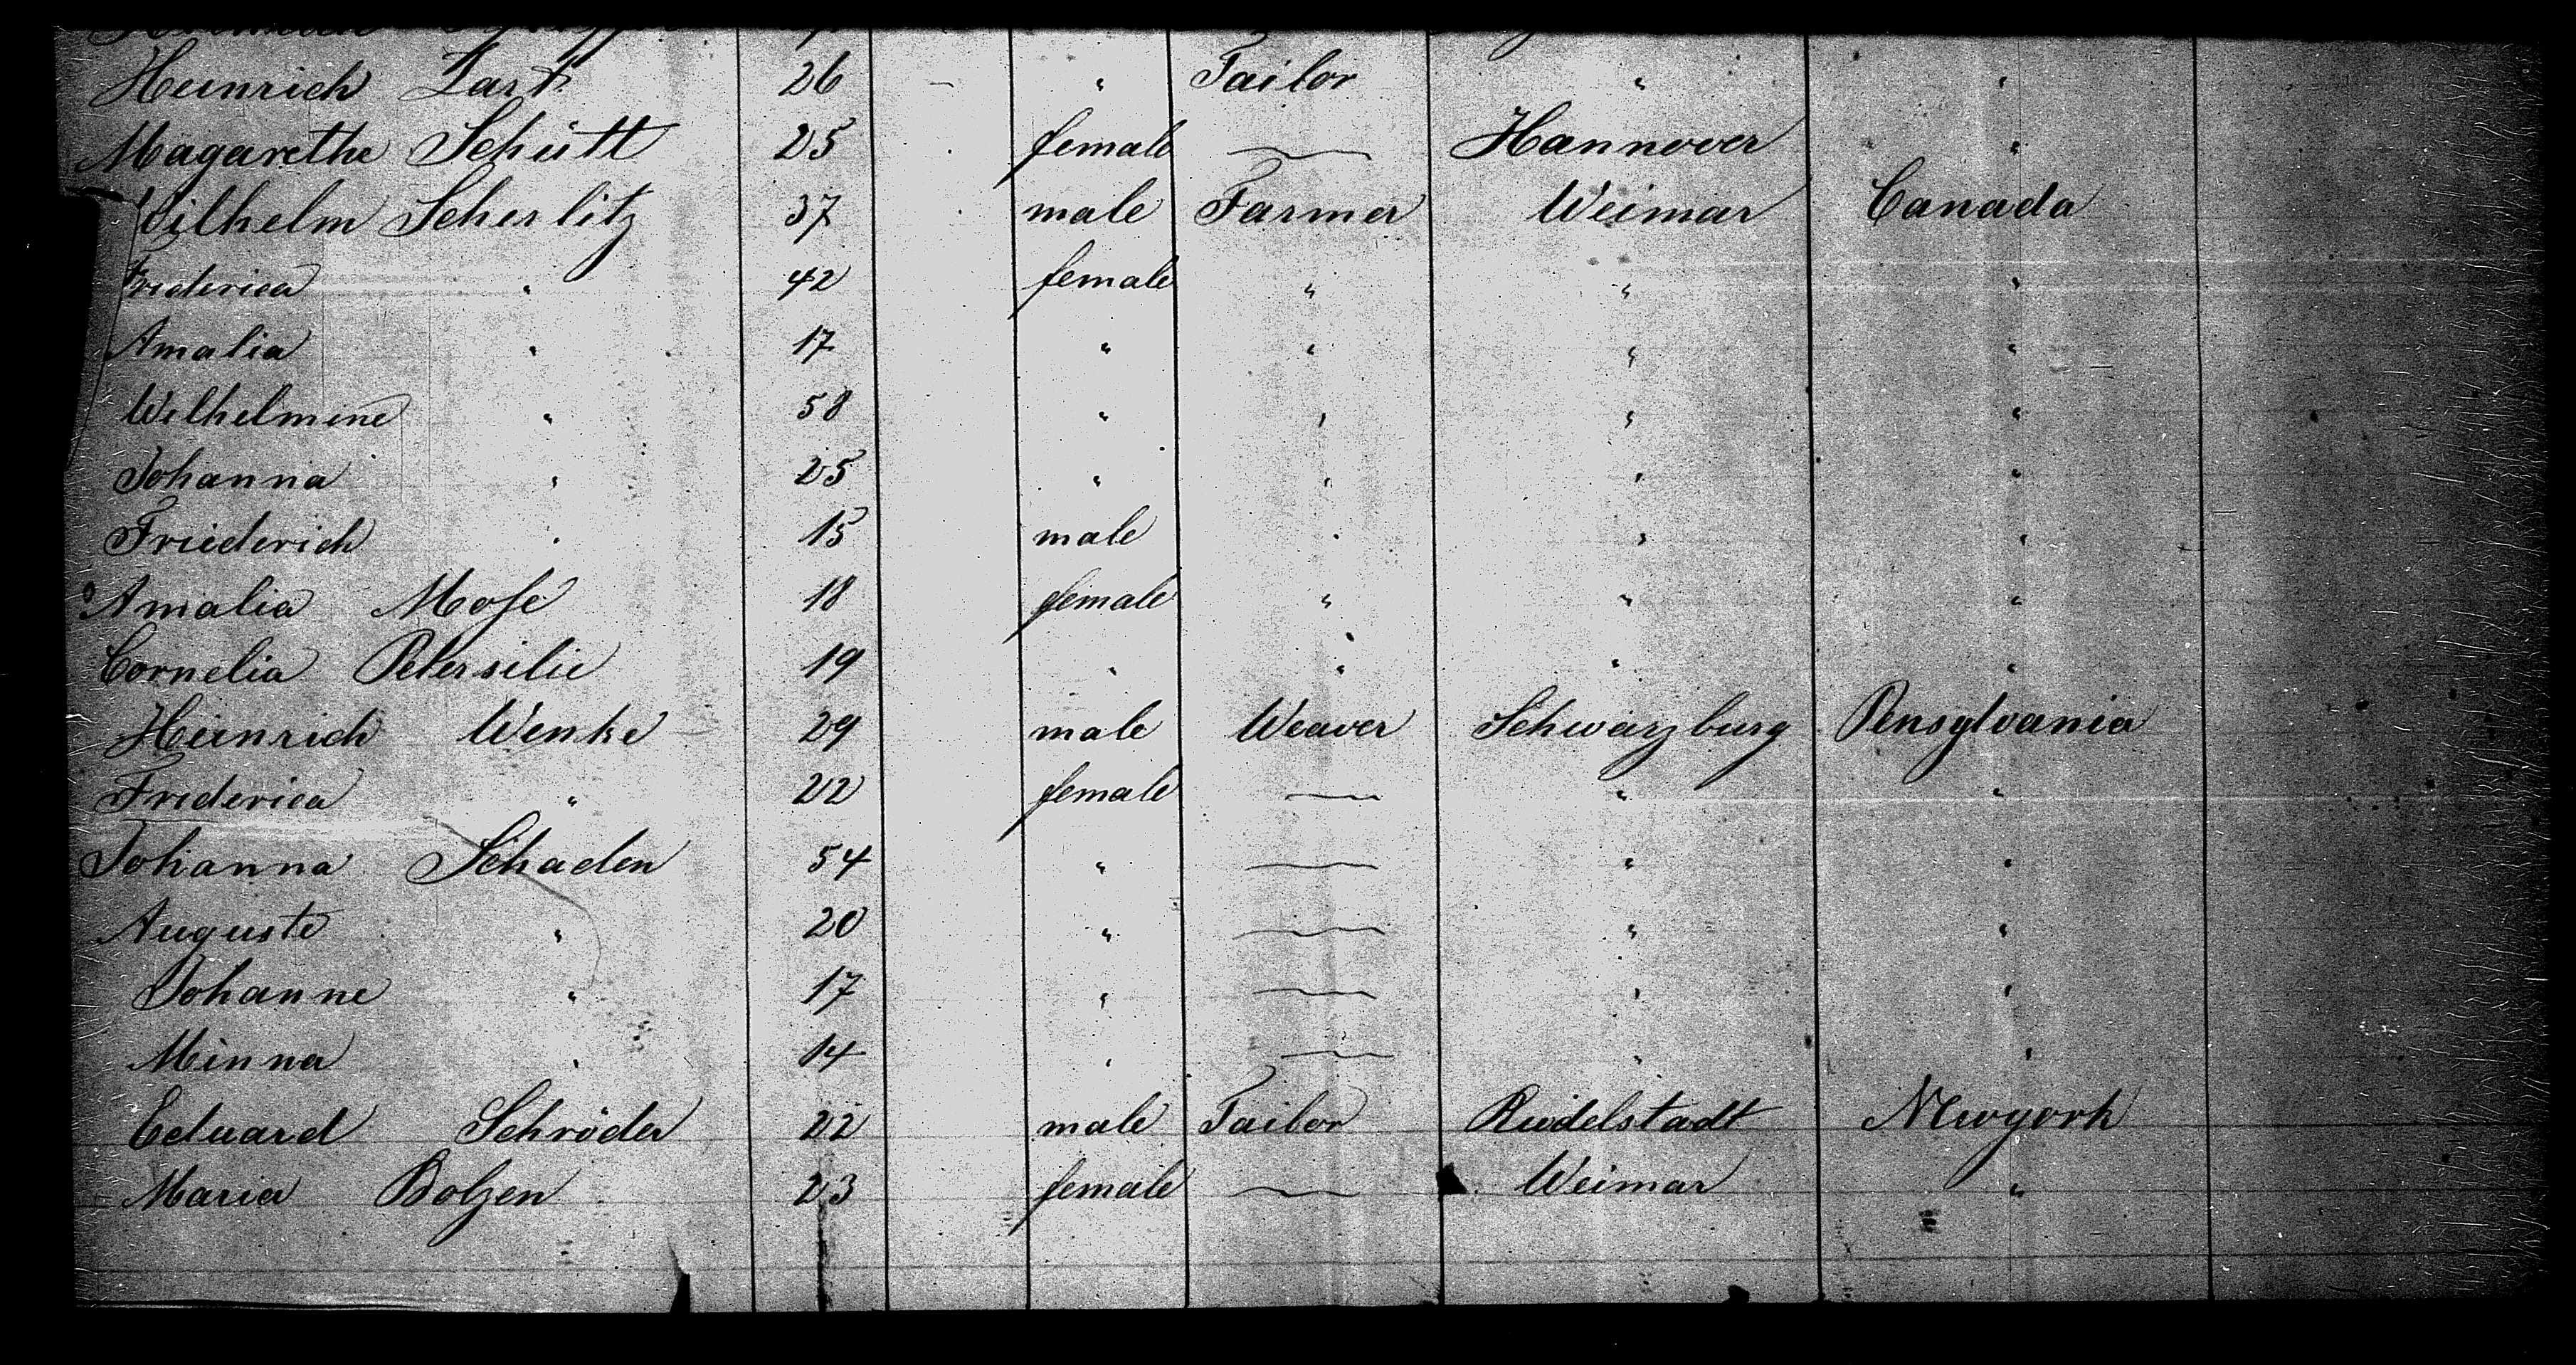 Heinrich Last 26 - " Tailor " "
Magarethe Schütt 25 female — Hannover "
Wilhelm Scherlitz 37 male Farmer Weimar Canada
Friderica " 42 female " " "
Amalia " 17 " " " "
Wilhelmine " 58 " " " "
Johanna " 25 " " " "
Friederich " 15 male " " "
Amalia Mose 18 female " " "
Cornelia Petersilie 19 " " " "
Heinrich Wenke 29 male Weaver Schwarzburg Pensylvania
Friderica " 22 female — " "
Johanna Schaden 54 " — " "
Auguste " 20 " — " "
Johanne " 17 " — " "
Minna " 14 " — " "
Eduard Schröder 22 male Tailor Rudelstadt Newyork
Maria Bolzen 23 female — Weimar "